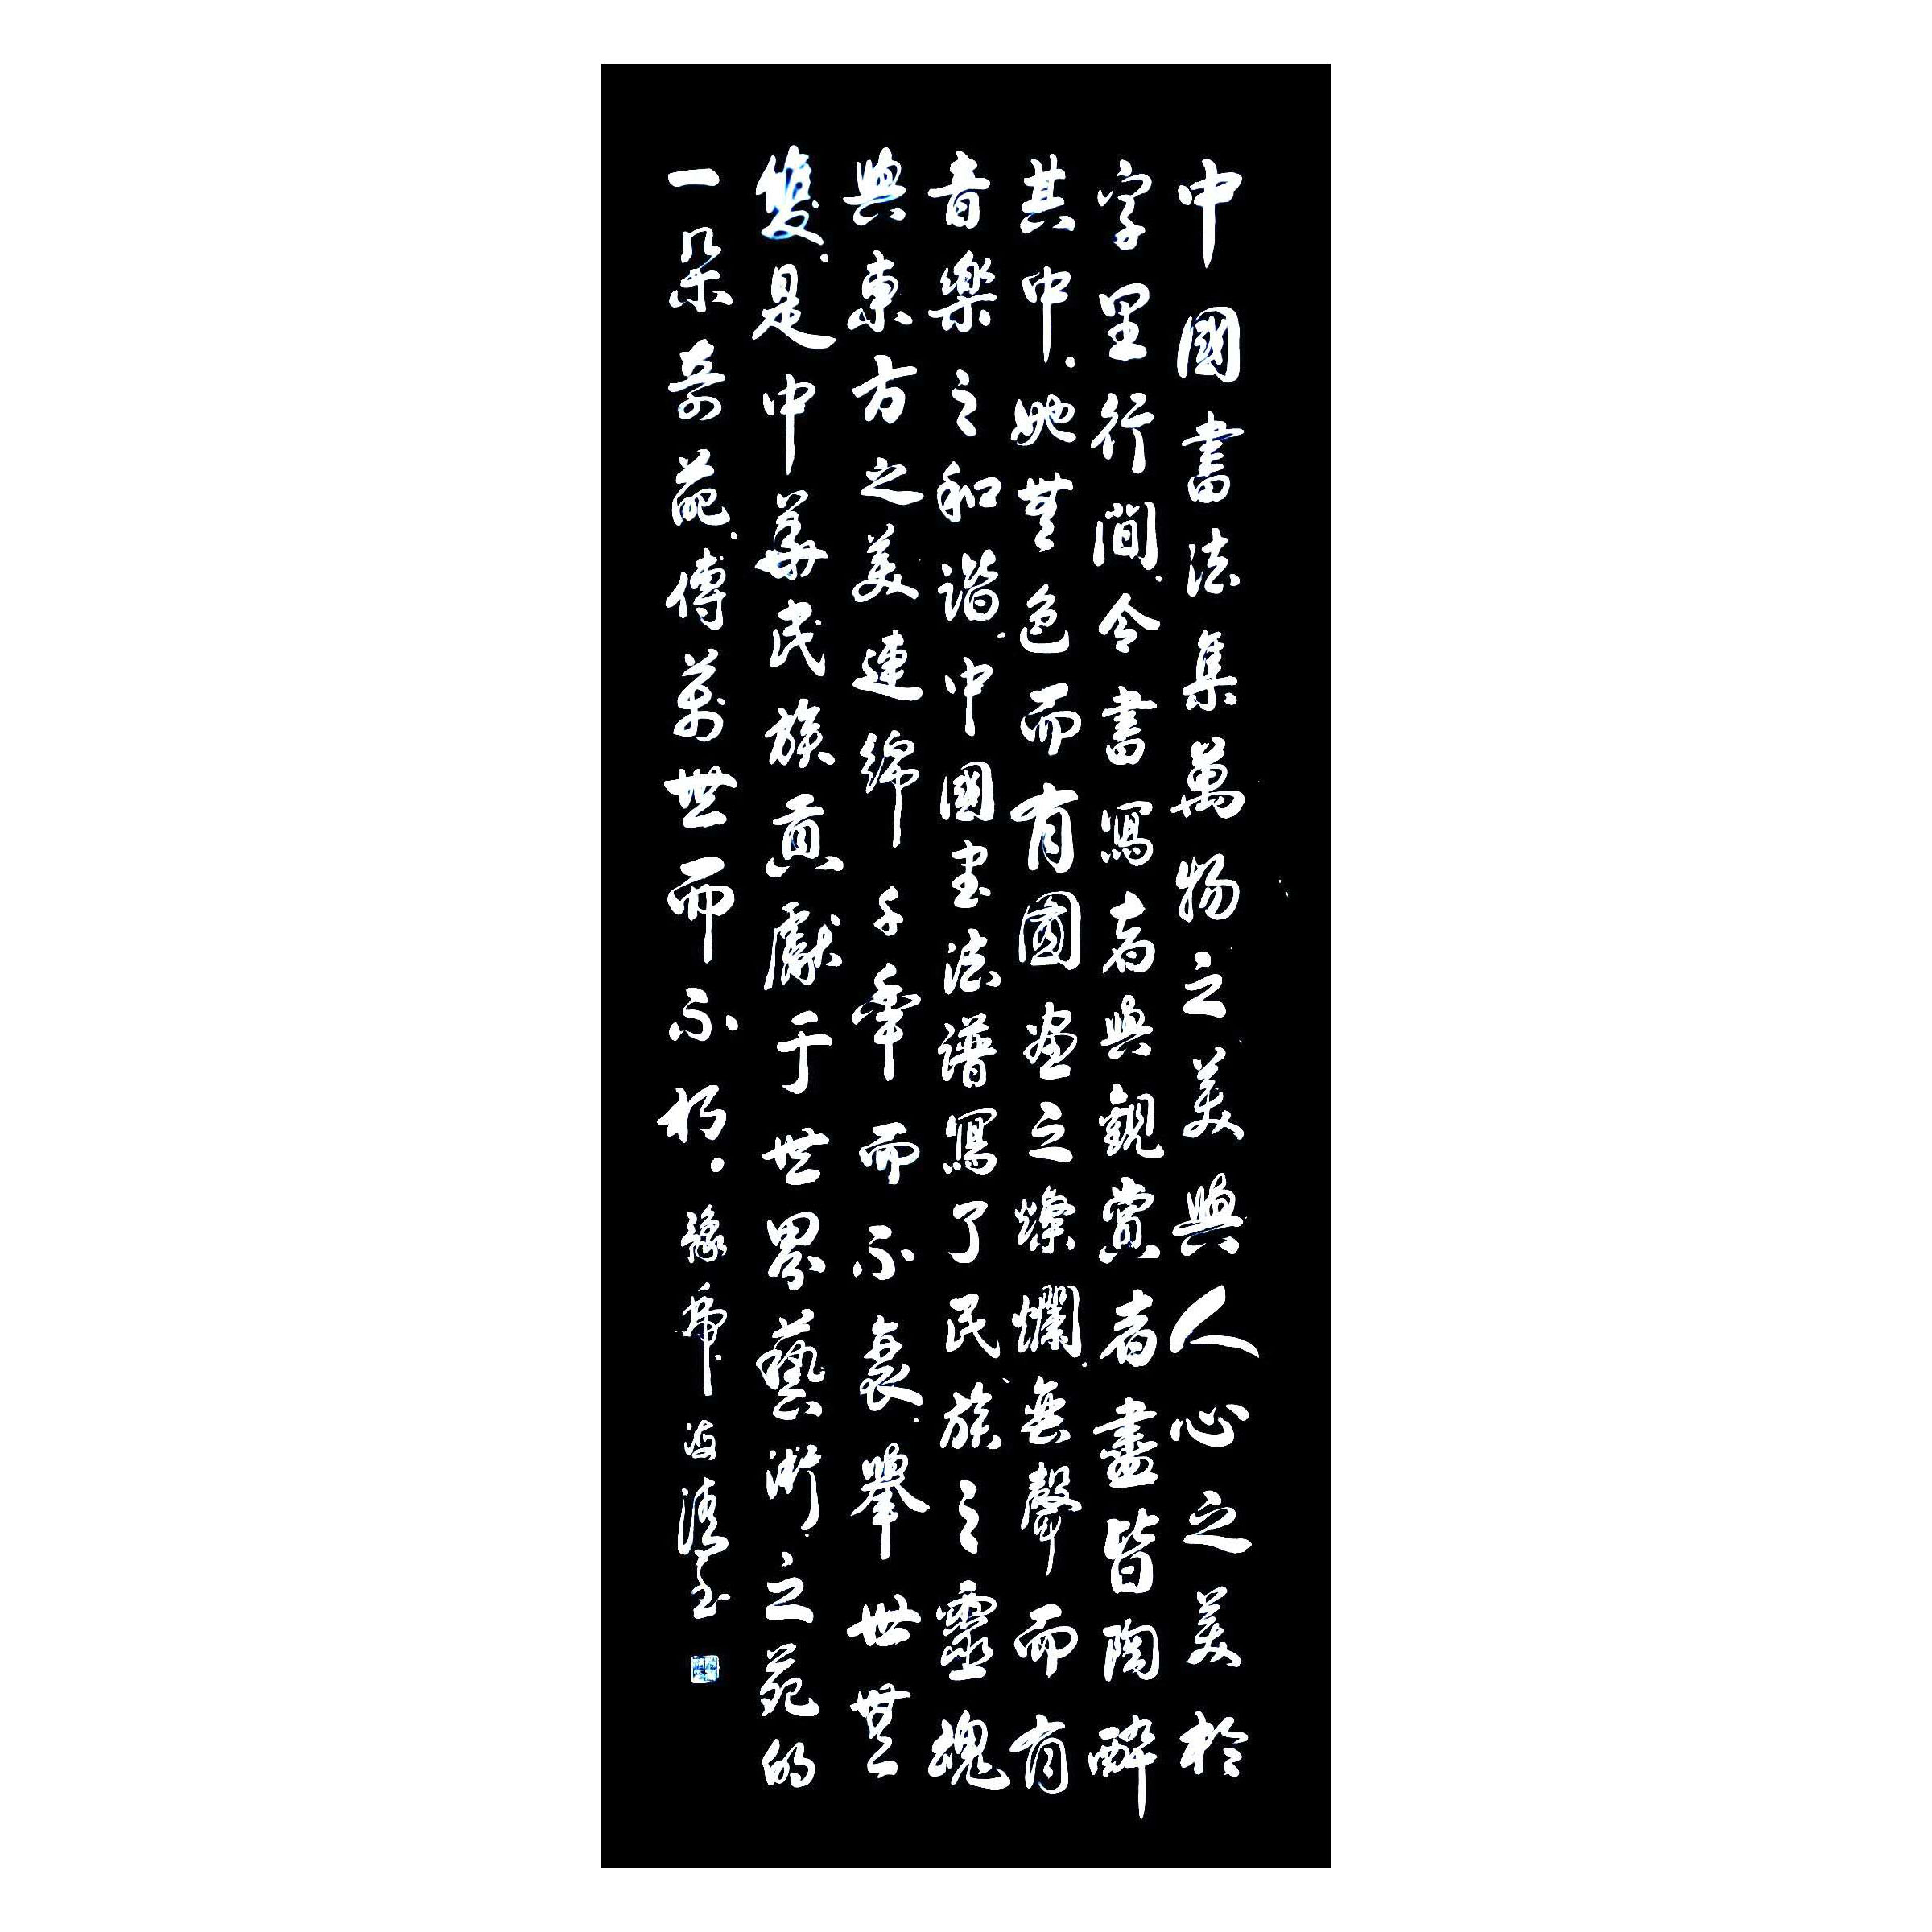 中國書法集萬物之美與人心之美於
字里行間.令書寫者與觀賞者盡皆陶醉
其中.她無色而有圖畫之燦爛.無聲而有
音樂之和諧.中國書法譜寫了民族之靈魂
與東方之美連綿千年而不衰.舉世無
雙.是中華民族貢獻于世界藝術之苑的
一朵奇葩.傳万世而不朽.